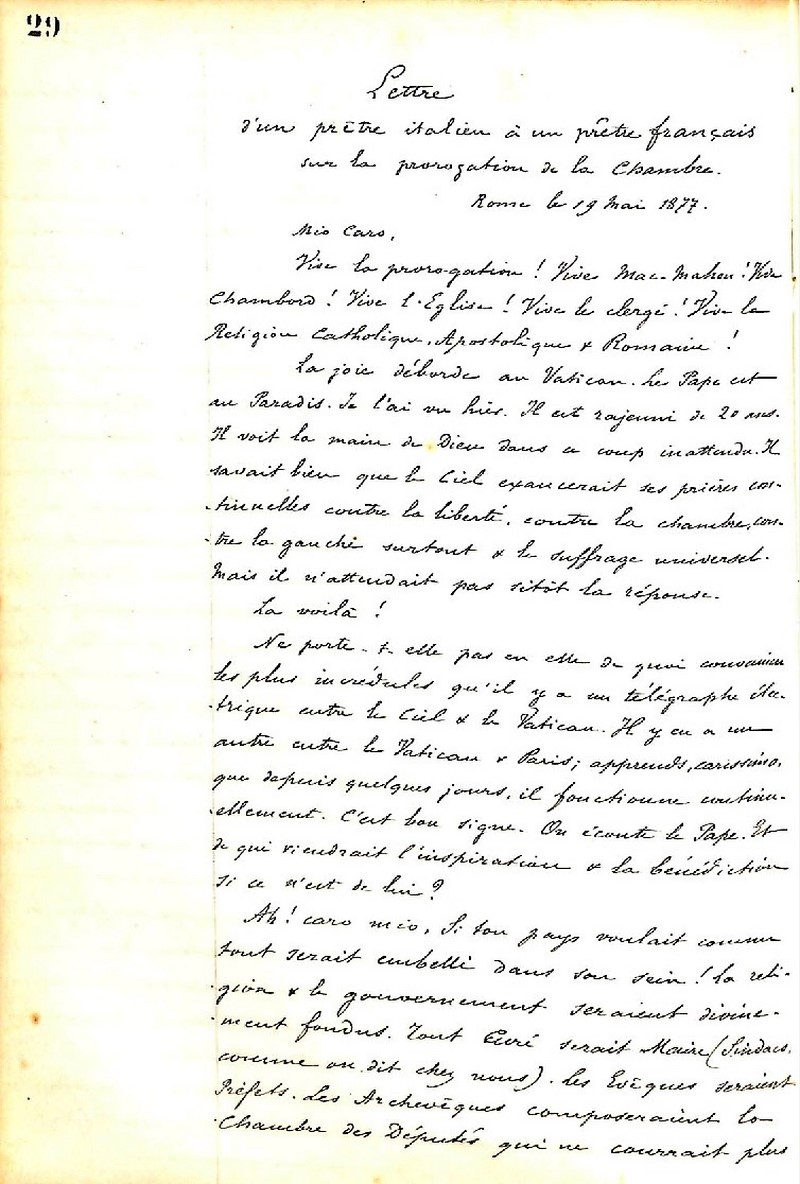 29
Lettre
d'un prêtre italien à un prêtre français
sur la prorogation de la Chambre.
Rome le 19 Mai 1877.
Mio Caro,
Vive la prorogation ! Vive Mac-Mahon ! Vive
Chambord ! Vive l'Eglise ! Vive le clergé ! Vive la
Religion Catholique, Apostolique & Romaine !
La joie déborde au Vatican. Le Pape est
au Paradis. Je l'ai vu hier. Il est rajeuni de 20 ans.
Il voit la main de Dieu dans ce coup inattendu. Il
savait bien que le Ciel exaucerait ses prières con-
-tinuelles contre la liberté, contre la chambre, con-
-tre la gauche surtout & le suffrage universel.
Mais il n'attendait pas sitôt la réponse.
La voilà !
Ne porte-t-elle pas en elle de quoi convaincre
les plus incrédules qu'il y a un télégraphe élec-
-trique entre le Ciel & le Vatican. Il y en a un
autre entre le Vatican & Paris; apprends, carissimo,
que depuis quelques jours, il fonctionne continu-
-ellement. C'est bon signe. On écoute le Pape. Et
de qui viendrait l'inspiration & la bénédiction
si ce n'est de lui ?
Ah ! caro mio, Si ton pays voulait comme
tout serait embelli dans son sein ! La reli-
-gion & le gouvernement seraient divine-
-ment fondus. Tout Curé serait Maire (Sindaco,
comme on dit chez nous). Les Evêques seraient
Préfets. Les Archevêques composeraient la
Chambre des Députés qui ne courrait plus